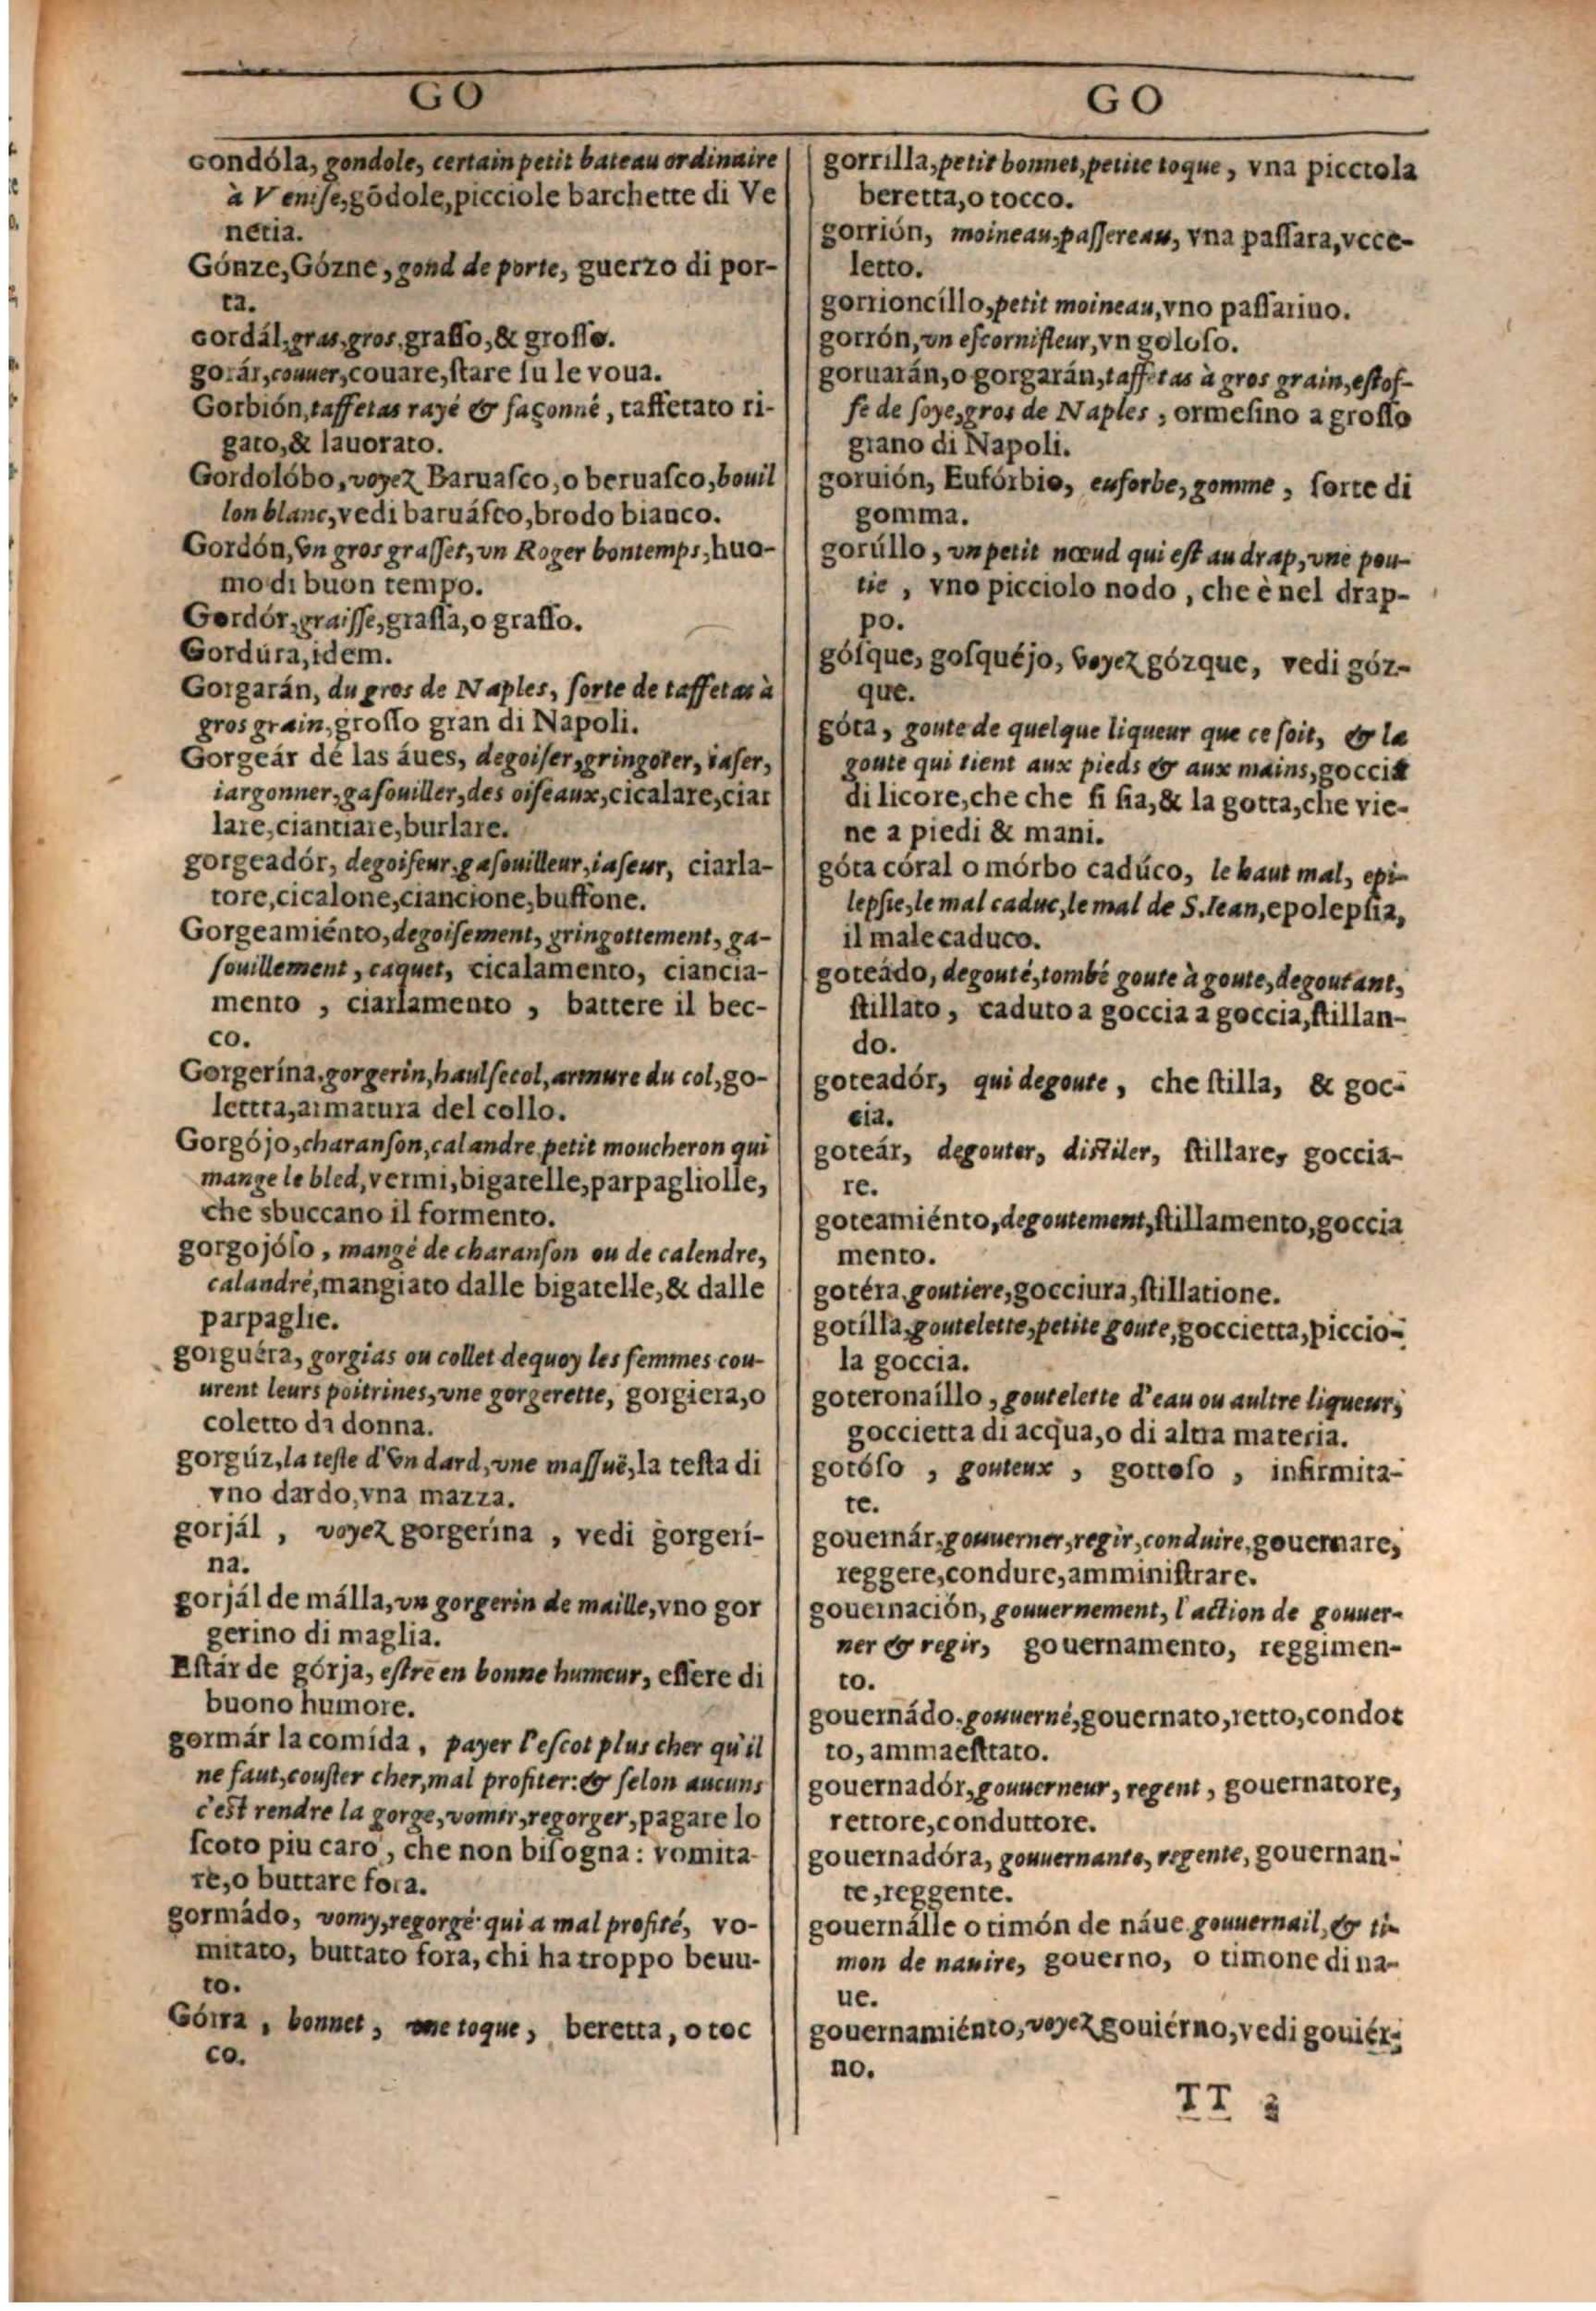 GO
condóla, gondole, certain petit bateau ordinaire
à Venise, gõdole, picciole barchette di Ve
netia.
Gónze, Gózne, gond de porte, guerzo di por-
ta.
cordál, gras, gros, graſſo, & groſſo.
gorár, couuer, couare, ſtare ſu le voua.
Gorbión, taffetas rayé & façonné, taffetato ri-
gato, & lauorato.
Gordolóbo, voyez Baruaſco, o beruaſco, bouil
lon blanc, vedi baruáſco, brodo bianco.
Gordón, vn gros graſſet, vn Roger bontemps, huo-
mo di buon tempo.
Gordór, graiſſe, graſſa, o graſſo.
Gordúra, idem.
Gorgarán, du gros de Naples, ſorte de taffetas à
gros grain, groſſo gran di Napoli.
Gorgeár dé las áues, degoiſer, gringoter, iaſer,
iargonner, gaſouiller, des oiſeaux, cicalare, ciar
lare, ciantiare, burlare.
gorgeadór, degoiſeur, gaſouilleur, iaſeur, ciarla-
tore, cicalone, ciancione, buffone.
Gorgeamiénto, degoiſement, gringottement, ga-
ſouillement, caquet, cicalamento, ciancia-
mento, ciarlamento, battere il bec-
co.
Gorgerína, gorgerin, haulſecol, armure du col, go-
lettta, armatura del collo.
Gorgójo, charanſon, calandre petit moucheron qui
mange le bled, vermi, bigatelle, parpagliolle,
che sbuccano il formento.
gorgojóſo, mangé de charanſon ou de calendre,
calandré, mangiato dalle bigatelle, & dalle
parpaglie.
gorguéra, gorgias ou collet dequoy les femmes cou-
urent leurs poitrines, vne gorgerette, gorgiera, o
coletto di donna.
gorgúz, la teſte d'vn dard, vne maſſuë, la teſta di
vno dardo, vna mazza.
gorjál, voyez gorgerína, vedi gorgerí-
na.
gorjál de málla, vn gorgerin de maille, vno gor
gerino di maglia.
Eſtár de górja, eſtre en bonne humeur, eſſere di
buono humore.
gormár la comída, payer l'eſcot plus cher qu'il
ne faut, couſter cher, mal profiter: & ſelon aucuns
c'eſt rendre la gorge, vomir, regorger, pagare lo
ſcoto piu caro, che non biſogna: vomita-
re, o buttare fora.
gormádo, vomy, regorgé qui a mal profité, vo-
mitato, buttato fora, chi ha troppo beuu-
to.
Górra, bonnet, vne toque, beretta, o toc
co.
GO
gorrilla, petit bonnet, petite toque, vna picctola
beretta, o tocco.
gorrión, moineau, paſſereau, vna paſſara, vcce-
letto.
gorrioncíllo, petit moineau, vno paſſarino.
gorrón, vn eſcornifleur, vn goloſo.
goruarán, o gorgarán, taffetas à gros grain, eſtof-
fe de ſoye, gros de Naples, ormeſino a groſſo
grano di Napoli.
goruión, Eufórbio, euforbe, gomme, ſorte di
gomma.
gorúllo, vn petit nœud qui eſt au drap, vne pou-
tie, vno picciolo nodo, che è nel drap-
po.
góſque, goſquéjo, voyez gózque, vedi góz-
que.
góta, goute de quelque liqueur que ce ſoit, & la
goute qui tient aux pieds & aux mains, goccia
di licore, che che ſi ſia, & la gotta, che vie-
ne a piedi & mani.
góta córal o mórbo cadúco, le haut mal, epi-
lepſie, le mal caduc, le mal de S. Iean, epolepſia,
il male caduco.
goteádo, degouté, tombé goute à goute, degoutant,
ſtillato, caduto a goccia a goccia, ſtillan-
do.
goteadór, qui degoute, che ſtilla, & goc-
cia.
goteár, degouter, diſtiler, ſtillare, goccia-
re.
goteamiénto, degoutement, ſtillamento, goccia
mento.
gotéra, goutiere, gocciura, ſtillatione.
gotílla, goutelette, petite goute, goccietta, piccio-
la goccia.
goteronaíllo, goutelette d'eau ou aultre liqueur,
goccietta di acqua, o di altra materia.
gotóſo, gouteux, gottoſo, infirmita-
te.
gouernár, gouuerner, regir, conduire, gouernare,
reggere, condure, amminiſtrare.
gouernación, gouuernement, l'action de gouuer-
ner & regir, gouernamento, reggimen-
to.
gouernádo, gouuerné, gouernato, retto, condot
to, ammaeſtrato.
gouernadór, gouuerneur, regent, gouernatore,
rettore, conduttore.
gouernadóra, gouuernante, regente, gouernan-
te, reggente.
gouernálle o timón de náue gouuernail, & ti-
mon de nauire, gouerno, o timone di na-
ue.
gouernamiénto, voyez gouiérno, vedi gouiér-
no.
TT 2